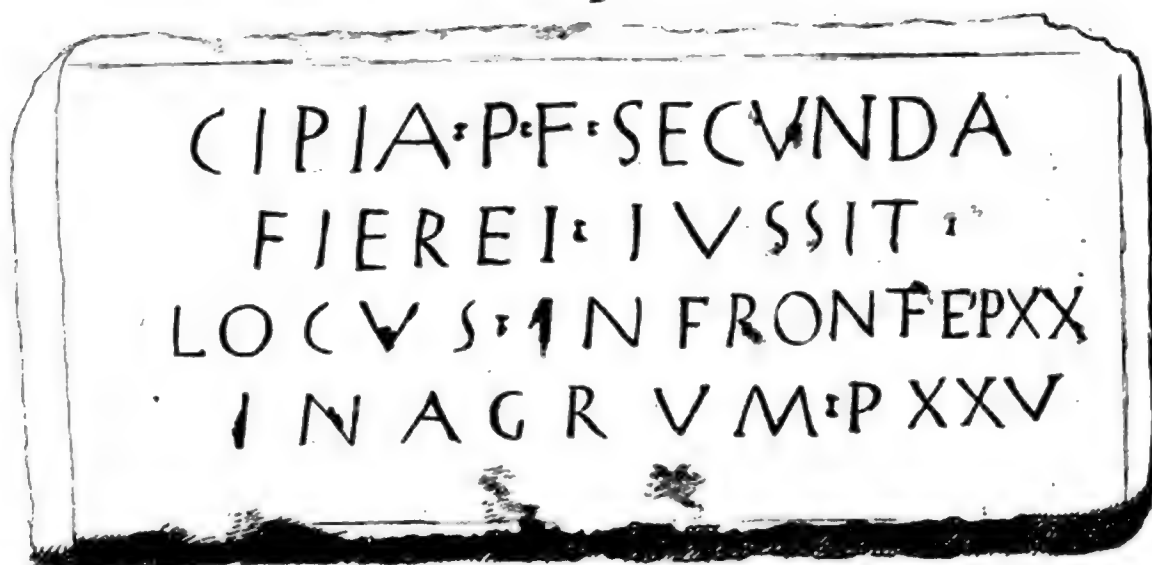 CIPIA·P·F·SECVNDA
FIEREI·IVSSIT·
LOCVS·IN FRONTE·PXX
IN AGRVM·P XXV